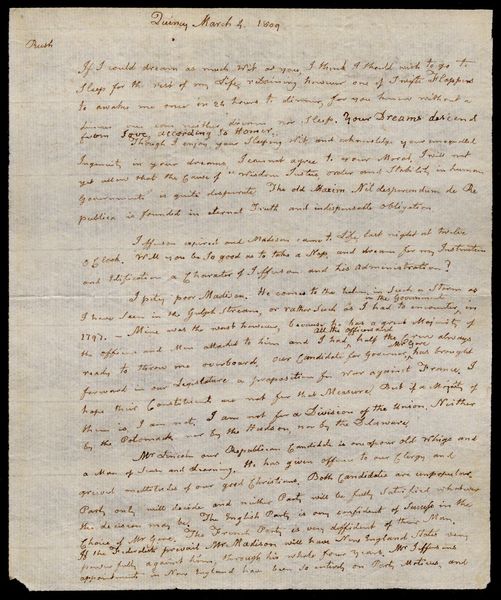 Quincy March 4. 1809
Rush
If I could dream as much Wit as you, I think I should wish to go to
Sleep for the rest of my Life, retaining however one of Swifts Flappers
to awake me once in 24 hours to dinner, for you know without a
dinner one can neither dream nor Sleep. Your Dreams descend
from Jove, according to Homer.
Though I enjoy your Sleeping Wit and acknowledge your unequalled
Ingenuity in your dreams, I cannot agree to your Moral. I will not
yet allow that the Cause of "Wisdom Justice order and Stability in human
Governments" is quite desperate. The old Maxim Nil desperandum de Re
publica is founded in eternal Truth and indispensable obligation
Jefferson expired and Madison came to Life, last night at twelve
o Clock. Will you be So good as to take a Nap, and dream for my Instruction
and Edification a Character of Jefferson and his Administration?
I pity poor Madison. He comes to the helm in Such a Storm as
I have Seen in the Gulph Stream, or rather Such as I had to encounter in the Government in
1797. — Mine was the worst however, because he has a great Majority of
the officers and Men attached to him and I had all the officers and half the Crew always
ready to throw me overboard. Our Candidate for Governor, Mr Gore has brought
forward in our Legislature a proposition for War against France. I
hope their Constituents are not for that Measure. But if a Majority of
them is, I am not, I am not for a Division of the Union. Neither
by the Potomack nor by the Hudson, nor by the Delaware.
Mr Lincoln our Republican Candidate is one of our old Whigs and
a Man of Sense and Learning. He has given offence to our Clergy and
grieved multitudes of our good Christians. Both Candidates are unpopular.
Party only will decide and neither Party will be fully Satisfied whatever
the decision may be. The English Party is very confident of Success in the
Choice of Mr Gore. The French Party is very diffident of their Man.
If the Federalists prevail Mr Madison will have New England States very
powerfully against him, through his whole four years. Mr Jeffersons
appointments in New England have been so entirely on Party Motives, and